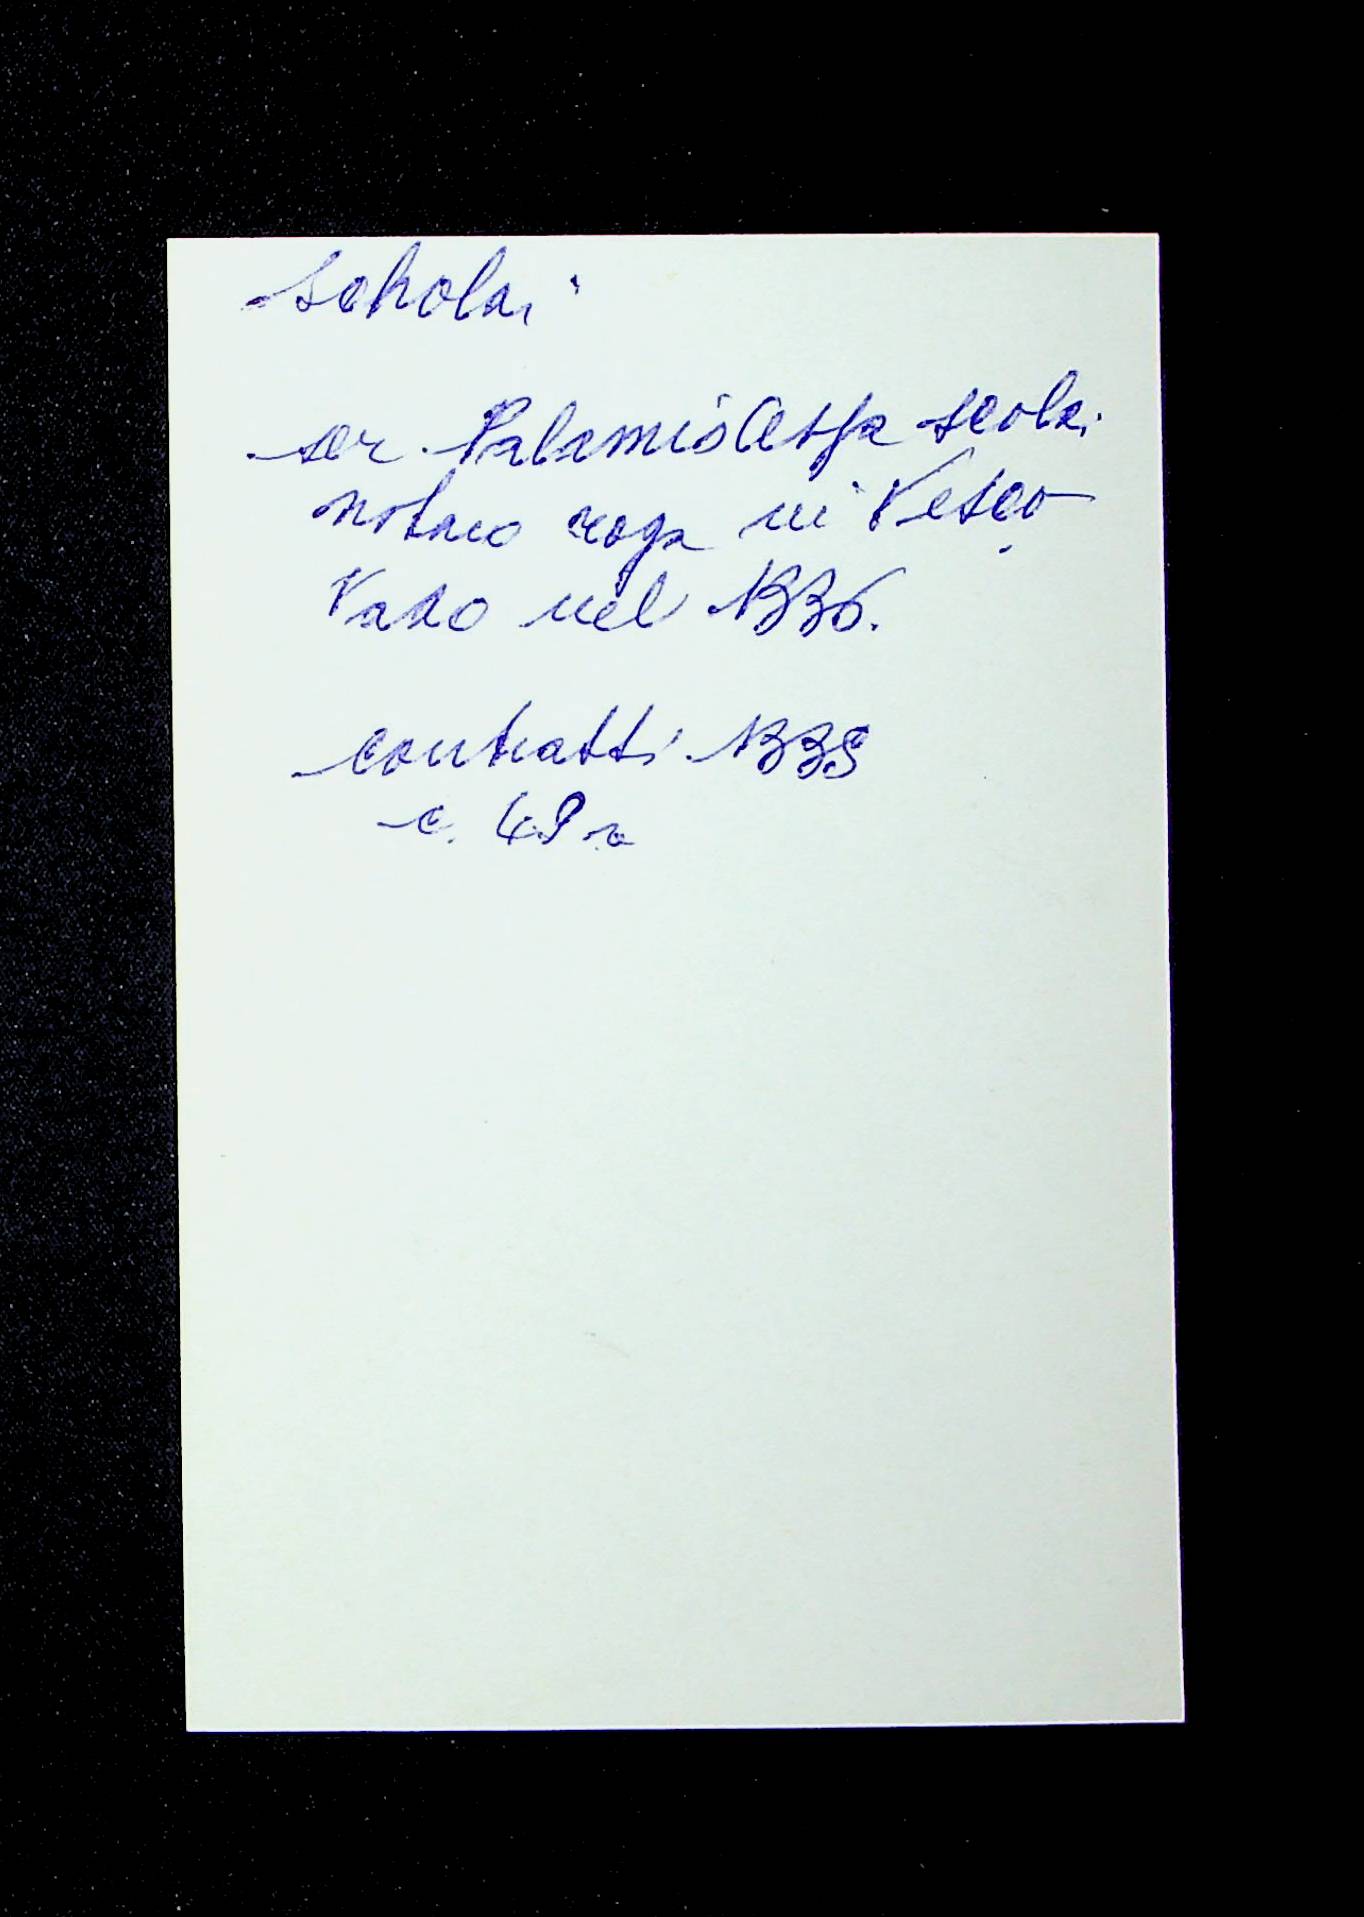 scholai
ser Palamis Scolai
notaio roga in Vesco
vado nel 1336.
contratti 1335
c. 49 r